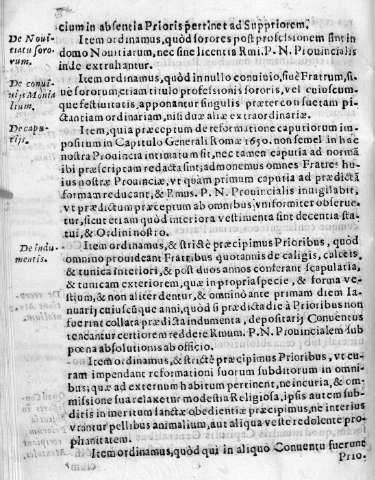 cium in absentia Prioris pertinet ad Suppriorem.
De Noui-
tiatu soro-
rum.
Item ordinamus, quòd sorores post professionem sint in
domo Nouitiarum, nec sine licentia Rmi. P. N. Prouincialis
inde extrahantur.
De conui-
uijs Monia-
lium.
Item ordinamus, quòd in nullo conuiuio, siue Fratrum, si-
ue sororum, etiam titulo professionis sororis, vel cuiuscum-
que festiuitatis, apponantur singulis præter consuetam pi-
ctantiam ordinariam, nisi duæ aliæ extraordinariæ.
De capu-
tijs.
Item, quia præceptum de reformatione caputiorum im-
positum in Capitulo Generali Romæ 1650. non semel in hac
nostra Prouincia intimatum sit, nec tamen caputia ad normã
ibi præscriptam redacta sint; admonemus omnes Fratres hu-
ius nostræ Prouinciæ, vt quàm primum caputia ad prædictã
formam reducant, & Rmus. P. N. Prouincialis inuigilabit,
vt prædictum præceptum ab omnibus vniformiter obserue-
tur, sicut etiam quòd interiora vestimenta sint decentia sta-
tui, & Ordini nostro.
De indu-
mentis.
Item ordinamus, & strictè præcipimus Prioribus, quòd
omnino prouideant Fratribus quotannis de caligis, calceis,
& tunica interiori, & post duos annos conferant scapularia,
& tunicam exteriorem, quæ in propria specie, & forma ve-
stium, & non aliter dentur, & omninò ante primam diem Ia-
nuarij cuiuscunque anni, quòd si prædictadie à Prioribus non
fuerint collata prædicta indumenta, depositarij Conuentus
teneantur certiorem reddere Rmum. P. N. Prouincialem sub
pœna absolutionis ab officio.
Item ordinamus, & strictè præcipimus Prioribus, vt cu-
ram impendant reformationi suorum subditorum in omni-
bus; quæ ad externum habitum pertinent, ne incuria, & om-
missione sua relaxetur modestia Religiosa, ipsis autem sub-
ditis in meritum sanctæ obedientiæ præcipimus, ne interius
vtantur pellibus animalium, aut aliqua veste redolente pro-
phanitatem.
Item ordinamus, quòd qui in aliquo Conuentu fuerunt
Prio-